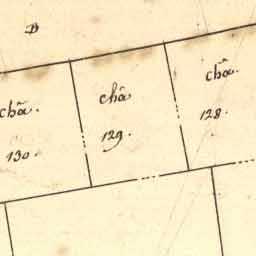 D
chã.
130.
chã
129.
chã.
128.